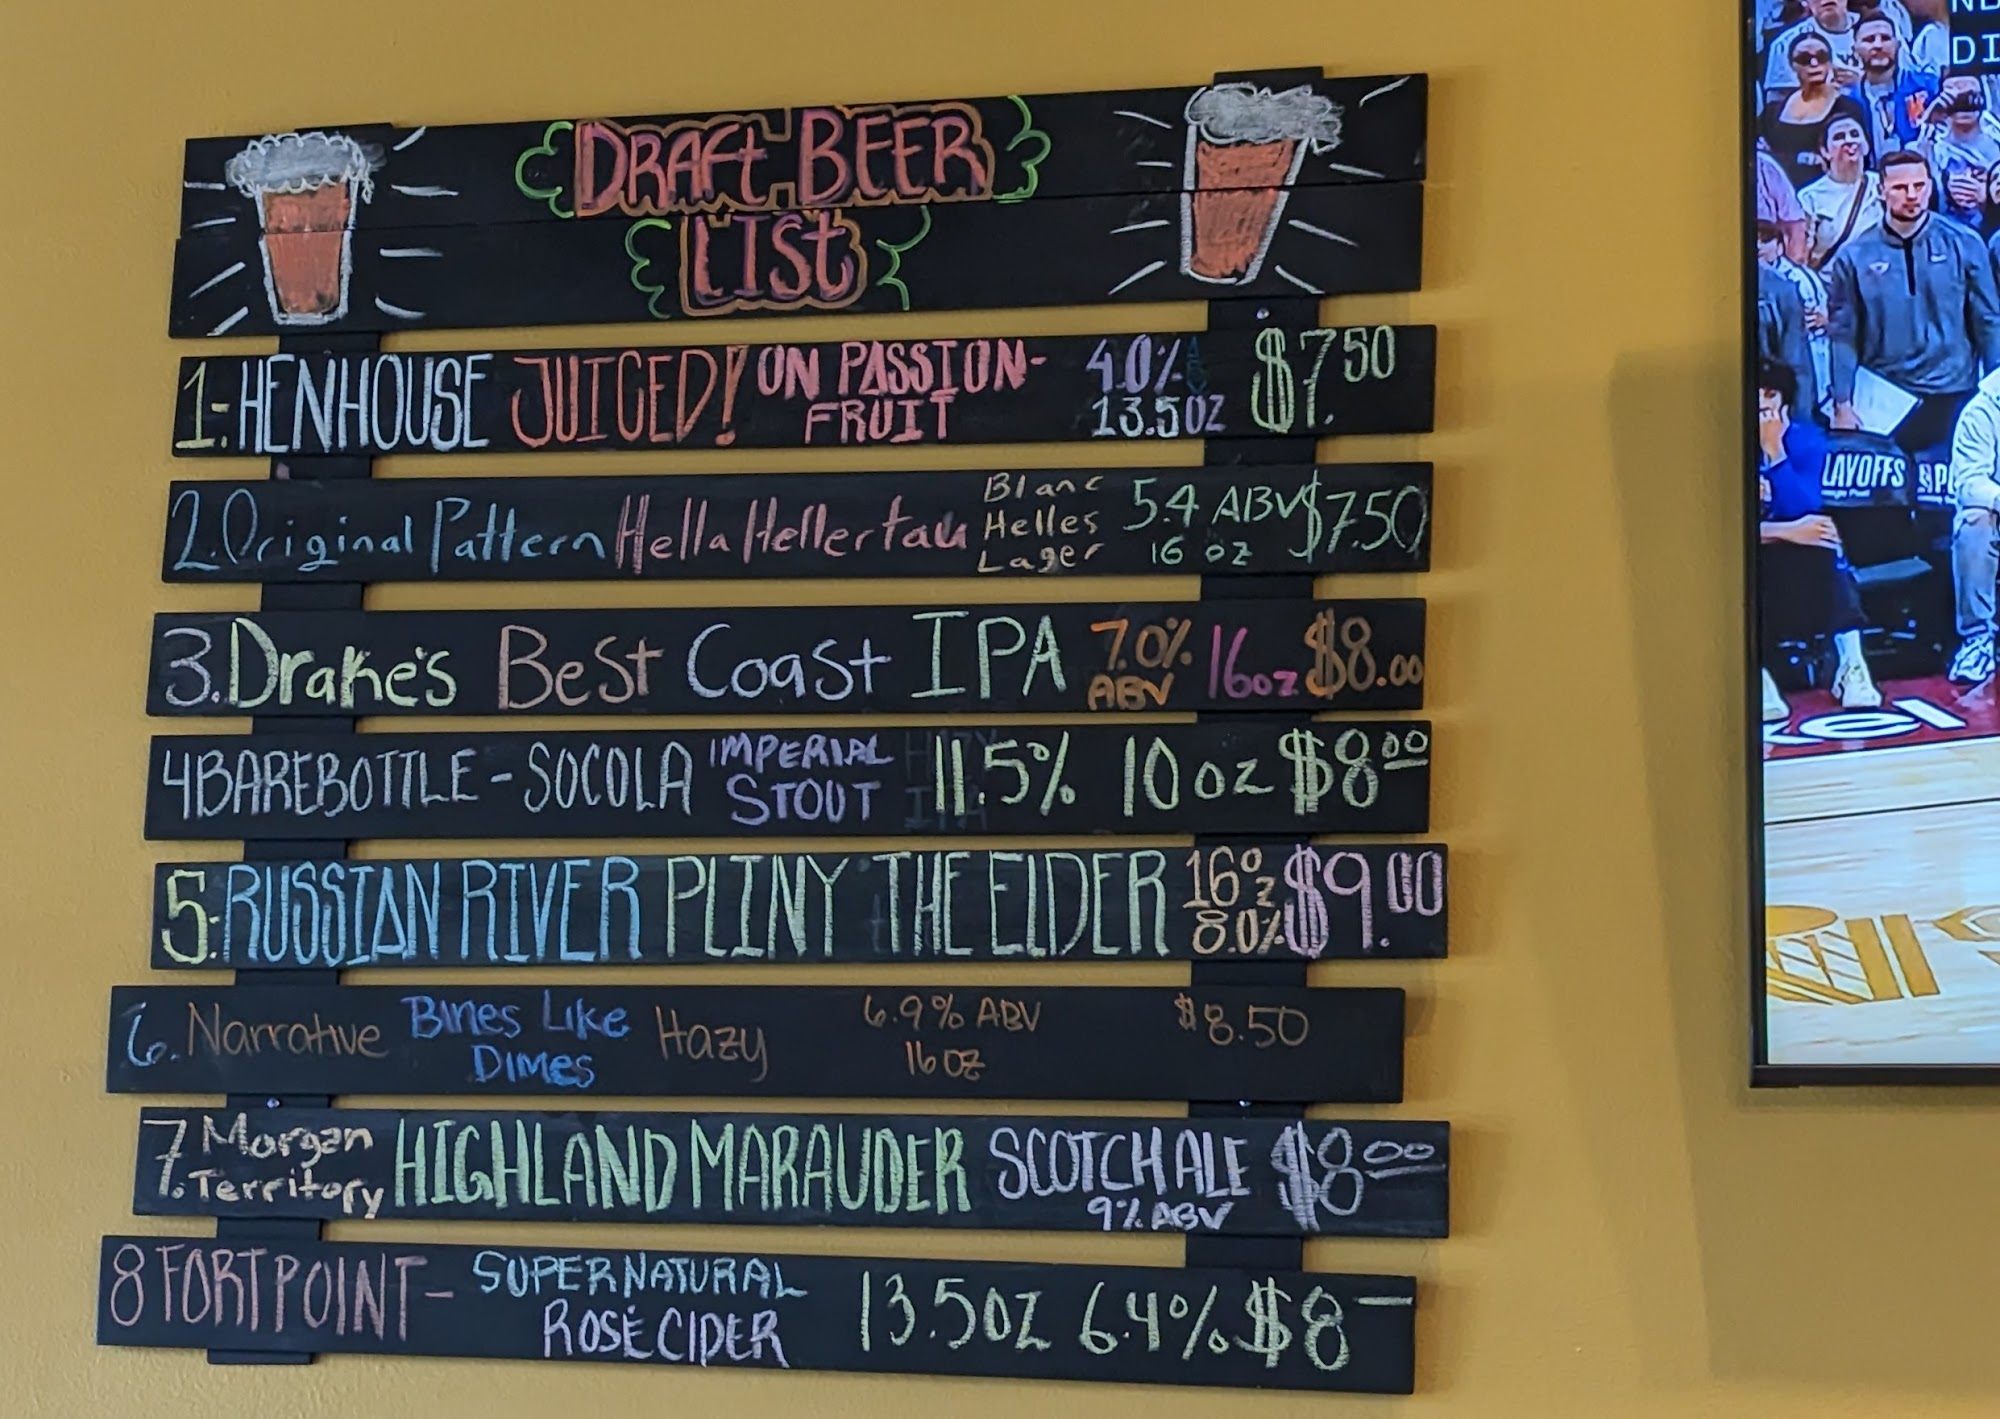 DRAft BEER
LISt
1. HENHOUSE JUICED! ON PASSION-
FRUIT
4.0%
13.5OZ
$7.50
2. Original Pattern Hella Hellertau
Blanc
Helles
Lager
5.4 ABV
16 oz
$7.50
3. Drake's Best Coast IPA
7.0%
ABV
16oz $8.00
4 BAREBOTTLE - SOCOLA
IMPERIAL
STOUT
11.5% 10 oz $8 00
5. RUSSIAN RIVER PLINY THE ELDER
16 oz
8.0%
$9.00
6. Narrative
Bines Like
Dimes
Hazy
6.9% ABV
16 oz
$8.50
7. Morgan
Territory
HIGHLAND MARAUDER
SCOTCH ALE
9% ABV
$8 00
8 FORT POINT -
SUPERNATURAL
ROSÉ CIDER
13.5OZ 6.4% $8 —
DI
LAYOFFS